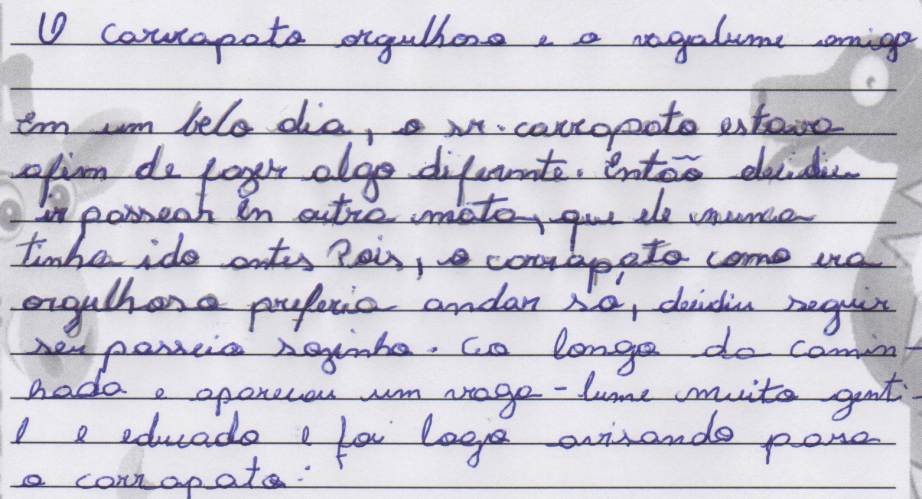 O carrapato orgulhoso e o vagalume amigo
Em um belo dia, o sr. carrapato estava
afim de fazer algo diferente. Então decidiu
ir passear en outra mata, que ele nunca
tinha ido antes Pois, o carrapato como era
orgulhoso preferia andar só, decidiu seguir
seu passeio sozinho. Ao longo da camin-
hada e apareceu um vaga-lume muito genti-
l e educado e foi logo avisando para
o carrapato: